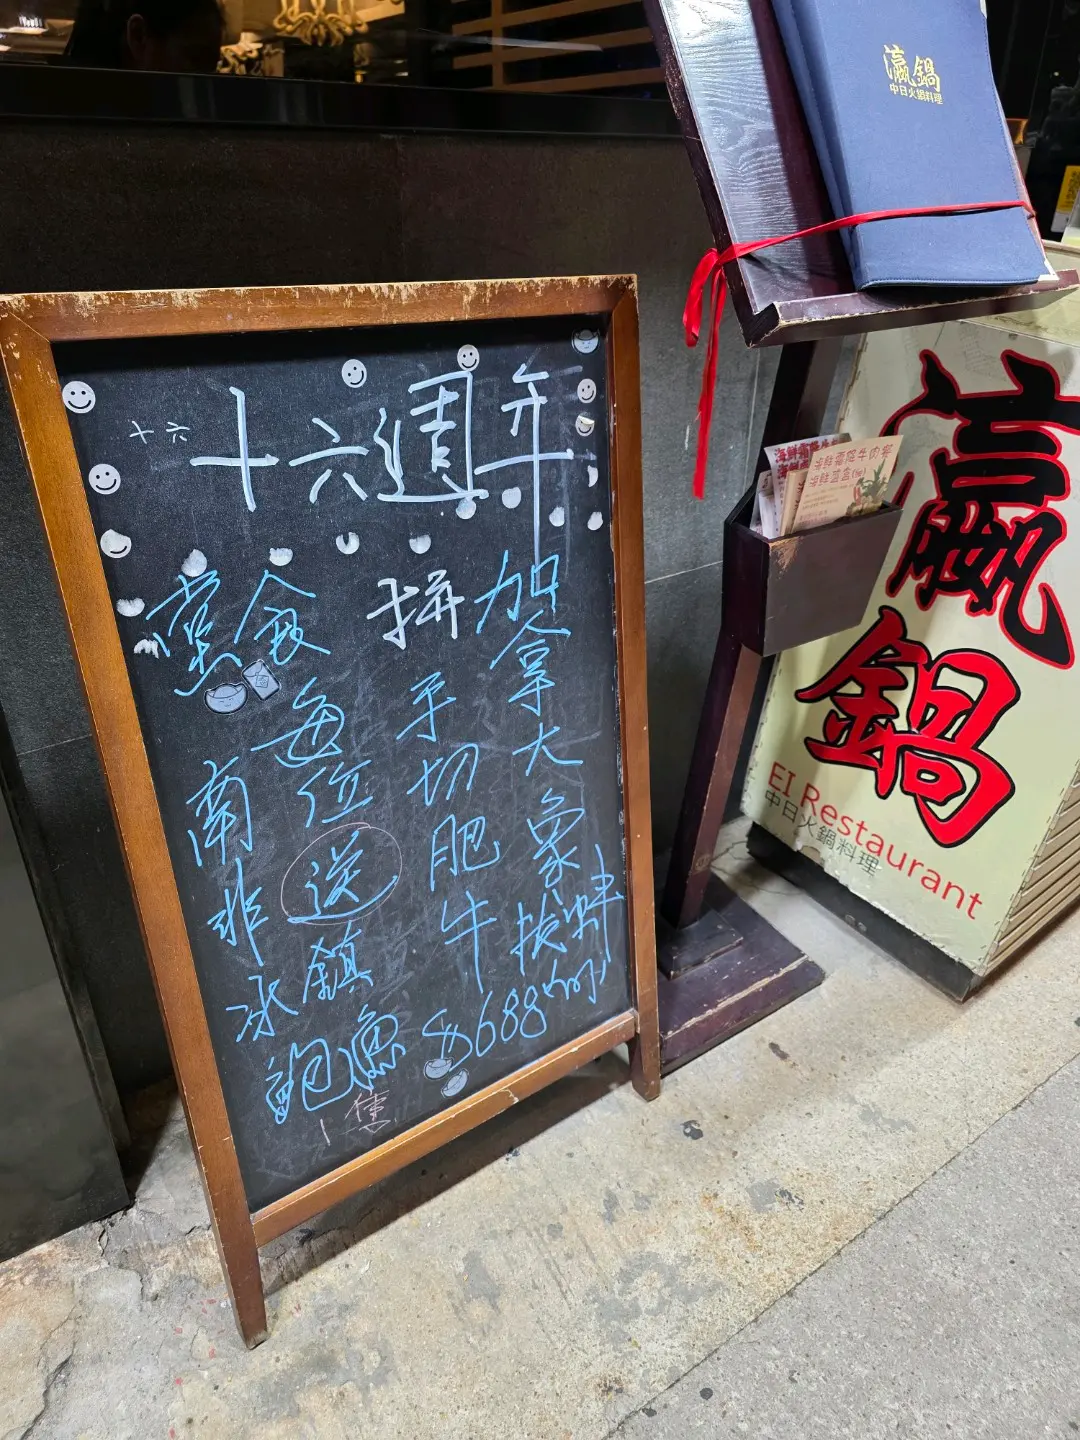 十六
十六週年
加拿大象拔蚌
拼
手切肥牛
$688
堂食
每位送
南非冰鎮鮑魚
1隻
瀛鍋
中日火鍋料理
瀛鍋
EI Restaurant
中日火鍋料理